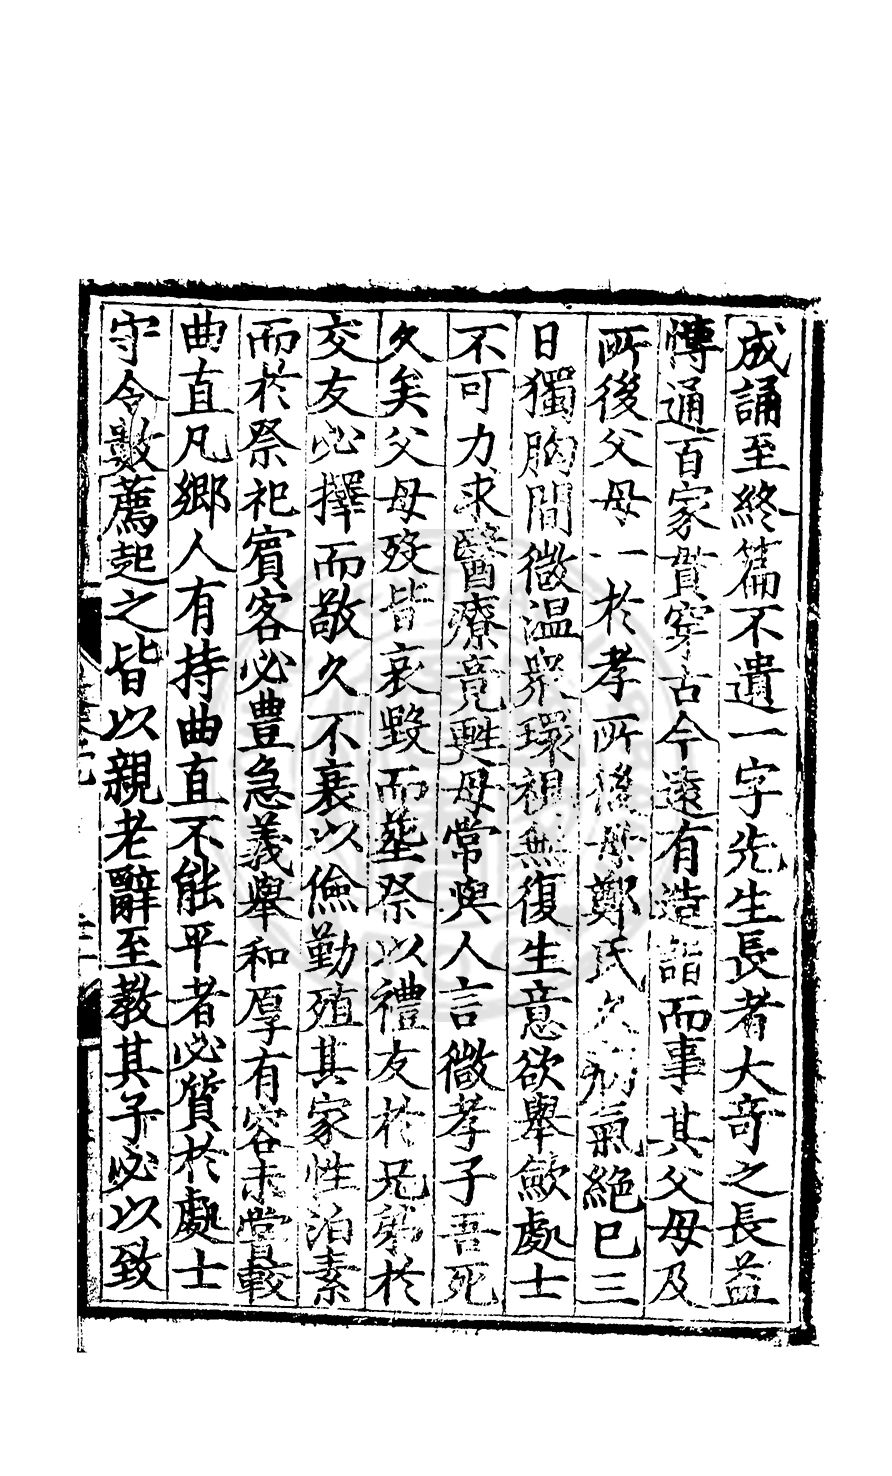 成誦至終篇不遺一字先生長者大奇之長益
愽通百家貫穿古今遠有造詣而事其父母及
所後父母一於孝所後母鄭氏久病氣絶已三
日獨胸間微温衆環視無復生意欲舉歛處士
不可力求醫療竟甦母常與人言微孝子吾死
久矣父母歿皆哀毀而塟祭以禮友於兄弟於
交友必擇而敬久不衰以儉勤殖其家性泊素
而於祭祀賓客必豊急義舉和厚有容未嘗較
曲直凡鄉人有持曲直不能平者必質於處士
守令數薦起之皆以親老辭至教其子必以致